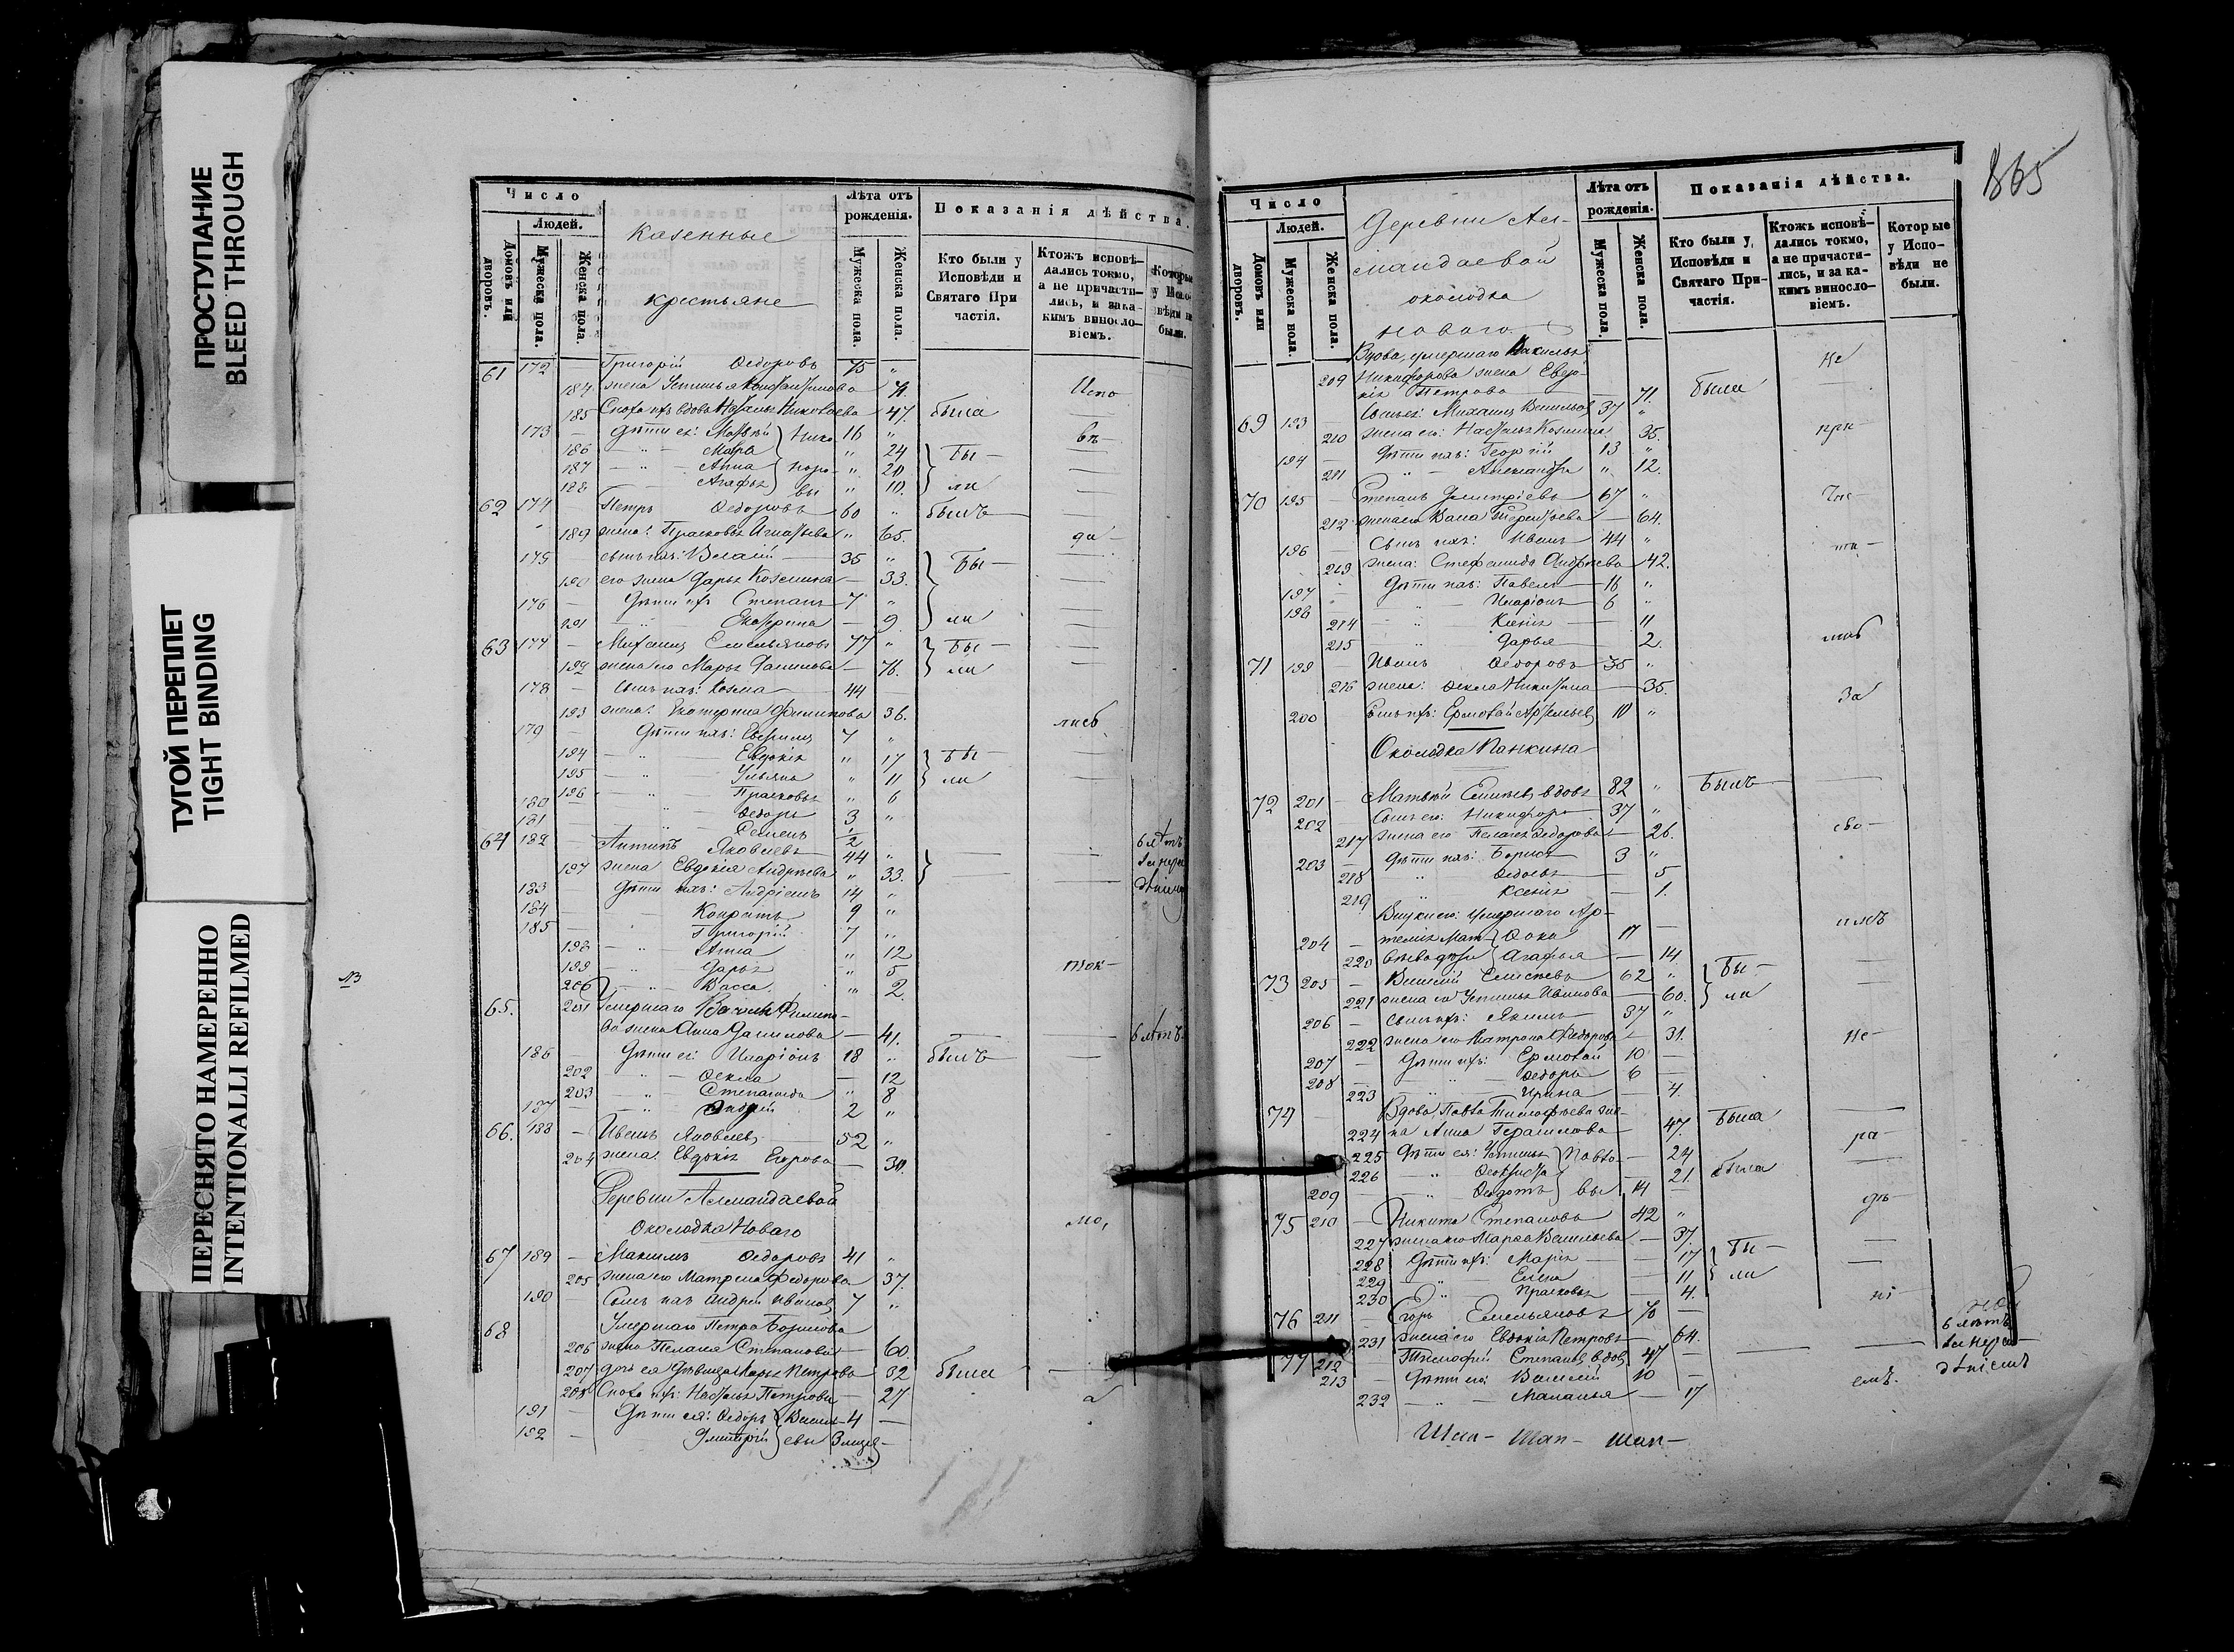 ПРОСТУПАНИЕ
BLEED THROUGH
ТУГОЙ ПЕРЕПЛЕТ
TIGHT BINDING
ПЕРЕСНЯТО НАМЕРЕННО
INTENTIONALLI REFILMED
Число
Людей.
Домовъ или дворовъ.
Мужеска пола.
Женска пола.
Казенные
крестьяне
Лѣта отъ рожденія.
Мужеска пола.
Женска пола.
Показанія дѣйства.
Кто были у Исповѣди и Святаго При частія.
Ктожъ исповѣ-дались токмо, а не причасти-лись, и зака-кимъ винословіемъ.
61 172 — Григорій Ѳедоровъ 75 „
184 жена Устинья 71.
185 Сноха ихъ вдова Николаева 47. была
173 — дѣти ея: 16 „
186 — Марѳа „ 24 Бы-
187 — Анна „ 20
188 — Агафья „ 10. ли
62 174 — Петръ Ѳедоровъ 60 „ былъ
189 жена: Парасковья Игнатьева „ 65.
175 сынъ ихъ: Власій 35 „ Бы-
190 его жена Дарья Козмина — 33.
176 — Дѣти ихъ Степанъ 7 „
191 Екатерина — 9 ли
63 177 — Михаилъ Емельяновъ 77 „ Бы-
192 жена его Марья Данилова — 76. ли
178 — Сынъ ихъ: Козма 44
193 жена: Екатерина Филипова 36.
179 — Дѣти ихъ: 7 „
194 Евдокія „ 17 бы-
195 Ульяна „ 11 ли
196 Прасковья „ 6
180 Ѳедоръ 3 „
181 Семенъ 1/2
64 182 — Антипъ Яковлевъ 44 „
197 жена Евдокія Андреева „ 33.
183 Дѣти ихъ: Андріянъ 14 „
184 — Кондратъ 9 „
185 — Григорій 7 „
198 — Анна „ 12
199 — Дарья „ 5
200 — Васса „ 2.
65. 201 Умершаго Филипо-
ва жена Анна Данилова — 41.
186 — Дѣти ея: Иларіонъ 18 „ былъ
202 — Ѳекла — 12
203 — Степанида „ 8
187 — Андрей 2 „
66. 188 — Иванъ Яковлевъ 52 „
204 жена: Евдокія Егорова — 30.
Деревни Алмандаевой
Околодка Новаго
67 189 — Максимъ Ѳедоровъ 41 „
205 жена его Матрена Ѳедорова 37.
190 — Сынъ ихъ Андрей Ивановъ 7 „
68 Умершаго Петра Борисова
206 жена Пелагея Степанова — 60.
207 дочь ея дѣвица Марья Петрова 32 была
208 Сноха ихъ: Настасья Петрова — 27
191 — Дѣти ея: Ѳедоръ Василь- 4 —
192 — Дмитрій евы 3 мѣся
Испо-
вѣ-
да-
лись
ток-
мо,
а
6 лѣтъ
6 лѣтъ
№3
865
Число
Людей.
Домовъ или дворовъ.
Мужеска пола.
Женска пола.
Деревни Ал-
мандаевой
околодка
новаго
Лѣта отъ рожденія.
Мужеска пола.
Женска пола.
Показанія дѣйства.
Кто были у Исповѣди и Святаго При-частія.
Ктожъ исповѣ-дались токмо, а не причасти-лись, и за ка-кимъ винословіемъ.
Которые у Испо-вѣди не были.
Вдова, умершаго Василья
209 Никифорова жена Евдо-
кія Петрова 71. была
69 193 — Сынъ ея: Михаилъ Васильевъ 37 „
210 жена его: Настасья Козмина 35.
194 — Дѣти ихъ: Георгій 13 „
211 Александра „ 12.
70 195 — Степанъ Дмитріевъ 67 „
212 жена его Васа Терентьева — 64.
196 Сынъ ихъ: Иванъ 44 „
213 жена: Стефанида Андреева 42.
197 Дѣти ихъ: Павелъ 16 „
198 Иларіонъ 6 „
214 Ксенія 11
215 Дарья 2.
71 199 — Иванъ Ѳедоровъ 35 „
216 жена: Ѳекла Никитина 35.
200 Сынъ ихъ: Ермолай Артемьевъ 10 „
Околодка Панкина
72 201 — Матвѣй Елисѣевъ вдовъ 82 „ былъ
202 Сынъ его: Никифоръ 37 „
217 жена его Пелагея Ѳедорова — 26.
203 — Дѣти ихъ: Борисъ 3 „
218 Ѳедосья — 5
219 Ксенія — 1.
Внуки его: умершаго Ар-
204 — темія Мат- Ѳока 17 —
220 вѣева дѣти Агафья — 14.
73 205 — Василій Елисѣевъ 62 „ Бы-
221 жена его Устинья Иванова — 60. ли
206 — Сынъ ихъ: Якимъ 37 „
222 жена его Матрона Ѳедорова — 31.
207 — Дѣти ихъ: Ермолай 10 —
208 — Ѳедоръ 6 —
223 Ирина — 4.
74 Вдова Павла Тимофѣева же-
224 на Анна Герасимова 47. была
225 Дѣти ея: Устинья Павло- — 24
226 — 21. была
209 вы 14 —
75 210 — Никита Степановъ 42 „
227 жена его Марѳа Васильева — 37.
228 Дѣти ихъ: Марія — 17 Бы-
229 Елена — 11 ли
230 Прасковья — 4.
76 211 — Егоръ Емельяновъ 70 —
231 жена его Евдокія Петрова — 64.
77 212 Тимофей Степановъ вдовъ 47 —
213 — Дѣти его: Василій 10 —
232 — Маланья — 17
Не
при-
час-
ти-
лись
За
сво-
имъ
не-
ра-
дѣ-
ні-
емъ.
6 лѣтъ
за нера-
дѣніемъ